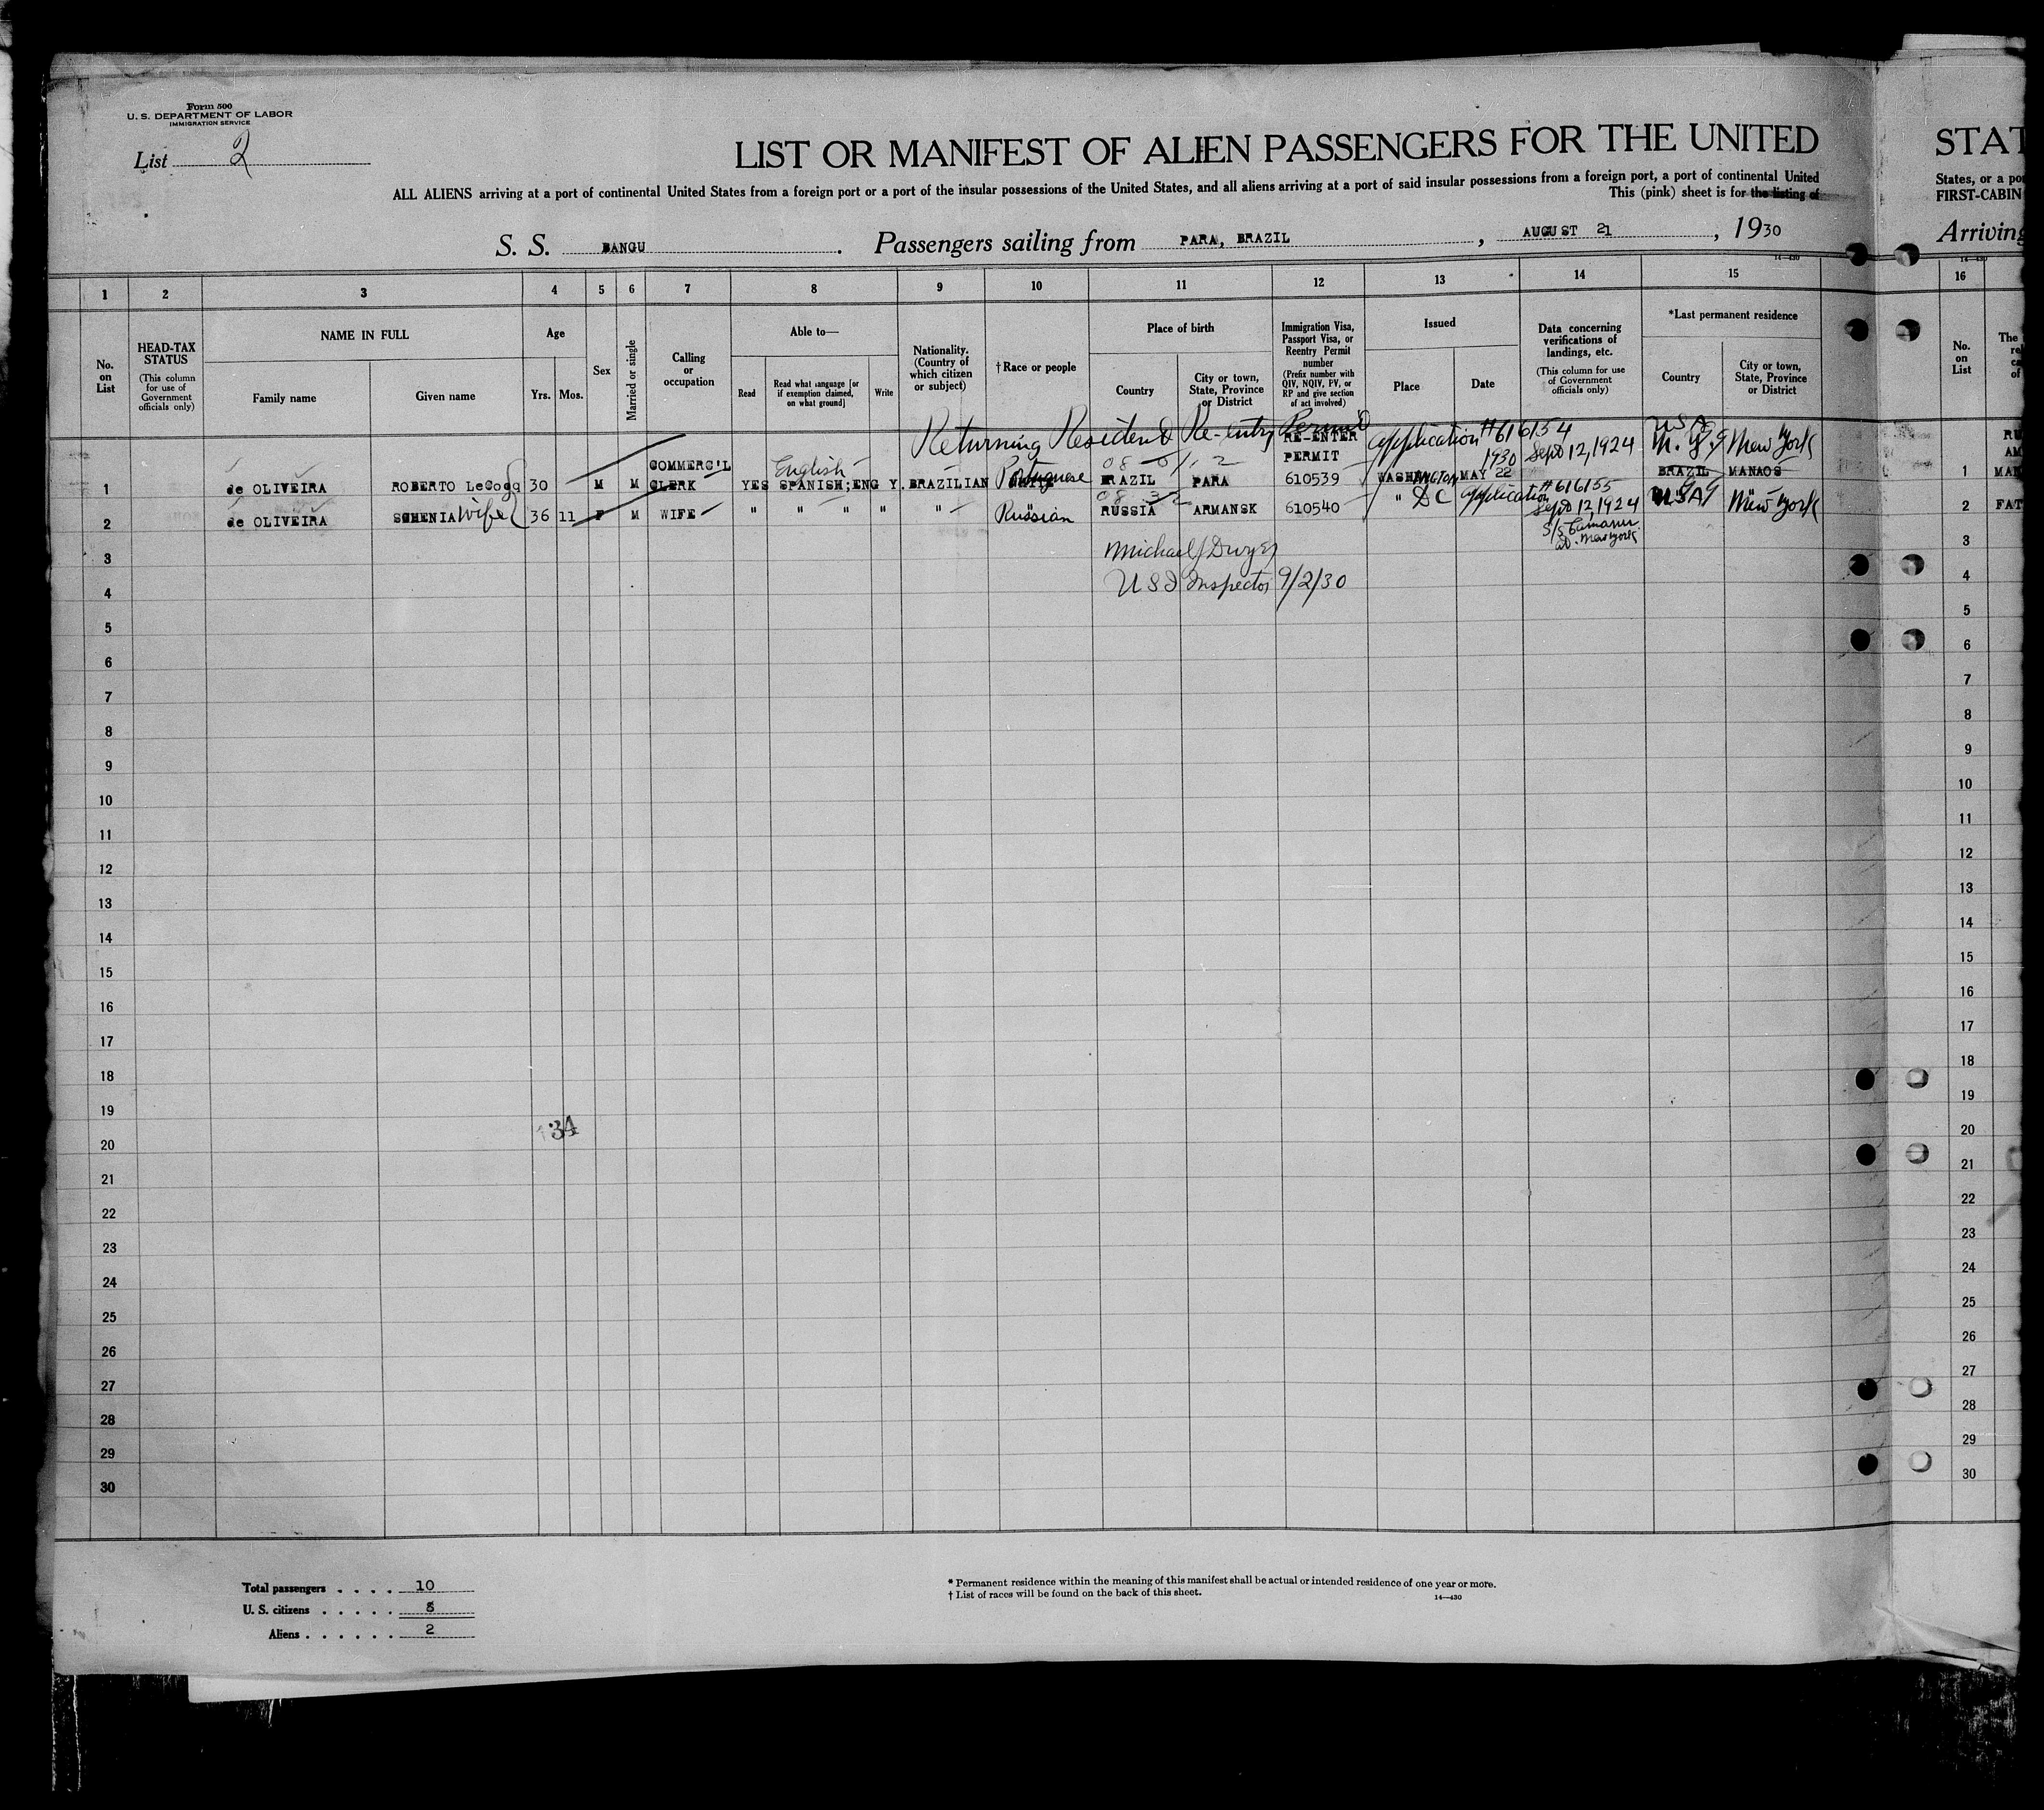 Form 500
U. S. DEPARTMENT OF LABOR
IMMIGRATION SERVICE
List 2
LIST OR MANIFEST OF ALIEN PASSENGERS FOR THE UNITED
STAT
ALL ALIENS arriving at a port of continental United States from a foreign port or a port of the insular possessions of the United States, and all aliens arriving at a port of said insular possessions from a foreign port, a port of continental United
States, or a po
This (pink) sheet is for the listing of
FIRST-CABIN
S. S. BANGU . Passengers sailing from PARA, BRAZIL , AUGUST 21 , 1930
Arriving
14—430
1 2 3 4 5 6 7 8 9 10 11 12 13 14 15 16
No. on List
HEAD-TAX STATUS
(This column for use of Government officials only)
NAME IN FULL
Family name
Given name
Age
Yrs. Mos.
Sex
Married or single
Calling or occupation
Able to—
Read
Read what language [or if exemption claimed, on what ground]
Write
Nationality. (Country of which citizen or subject)
†Race or people
Place of birth
Country
City or town, State, Province or District
Immigration Visa, Passport Visa, or Reentry Permit number
(Prefix number with QIV, NQIV, PV, or RP and give section of act involved)
Issued
Place
Date
Data concerning verifications of landings, etc.
(This column for use of Government officials only)
*Last permanent residence
Country
City or town, State, Province or District
No. on List
Returning Resident Re-entry Permit
RE-ENTER PERMIT
application #616154
1930
Sept 12, 1924
USA
N. Y. New York
COMMERC'L
English
1 de OLIVEIRA ROBERTO 30 M M CLERK YES SPANISH;ENG Y. BRAZILIAN Portuguese BRAZIL PARA 610539 WASHINGTON MAY 22 BRAZIL MANAOS 1
application #616155
2 de OLIVEIRA wife 36 11 F M WIFE " " " " " Russian RUSSIA ARMANSK 610540 " DC Sept 12, 1924 USA New York 2 FAT
S/S
at New York
Michael J Dwyer
U S I Inspector 9/2/30
3 3
4 4
5 5
6 6
7 7
8 8
9 9
10 10
11 11
12 12
13 13
14 14
15 15
16 16
17 17
18 18
19 19
34
20 20
21 21
22 22
23 23
24 24
25 25
26 26
27 27
28 28
29 29
30 30
Total passengers . . . . 10
U. S. citizens . . . . . 8
Aliens . . . . . . 2
* Permanent residence within the meaning of this manifest shall be actual or intended residence of one year or more.
† List of races will be found on the back of this sheet.
14—430